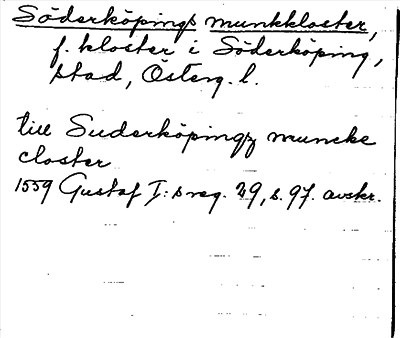 Söderköpings munkkloster,
f. kloster i Söderköping,
stad, Österg. l.
till Suderköpingz muncke
closter
1559 Gustaf I:s reg. 29, s. 97. avskr.